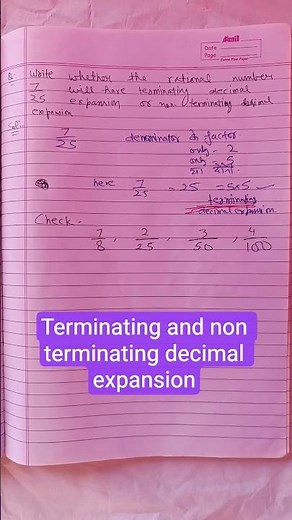 Date
Page
Q. Write whether the rational number
7/25 will have terminating decimal
expansion or non terminating decimal
expansion
Soln
7/25 denominator के factor
only - 2
only - 5
या दोनों
here 7/25 = 25 = 5x5 ✓
terminating
decimal expansion
Check -
7/8, 2/25, 3/50, 4/100
Terminating and non
terminating decimal
expansion